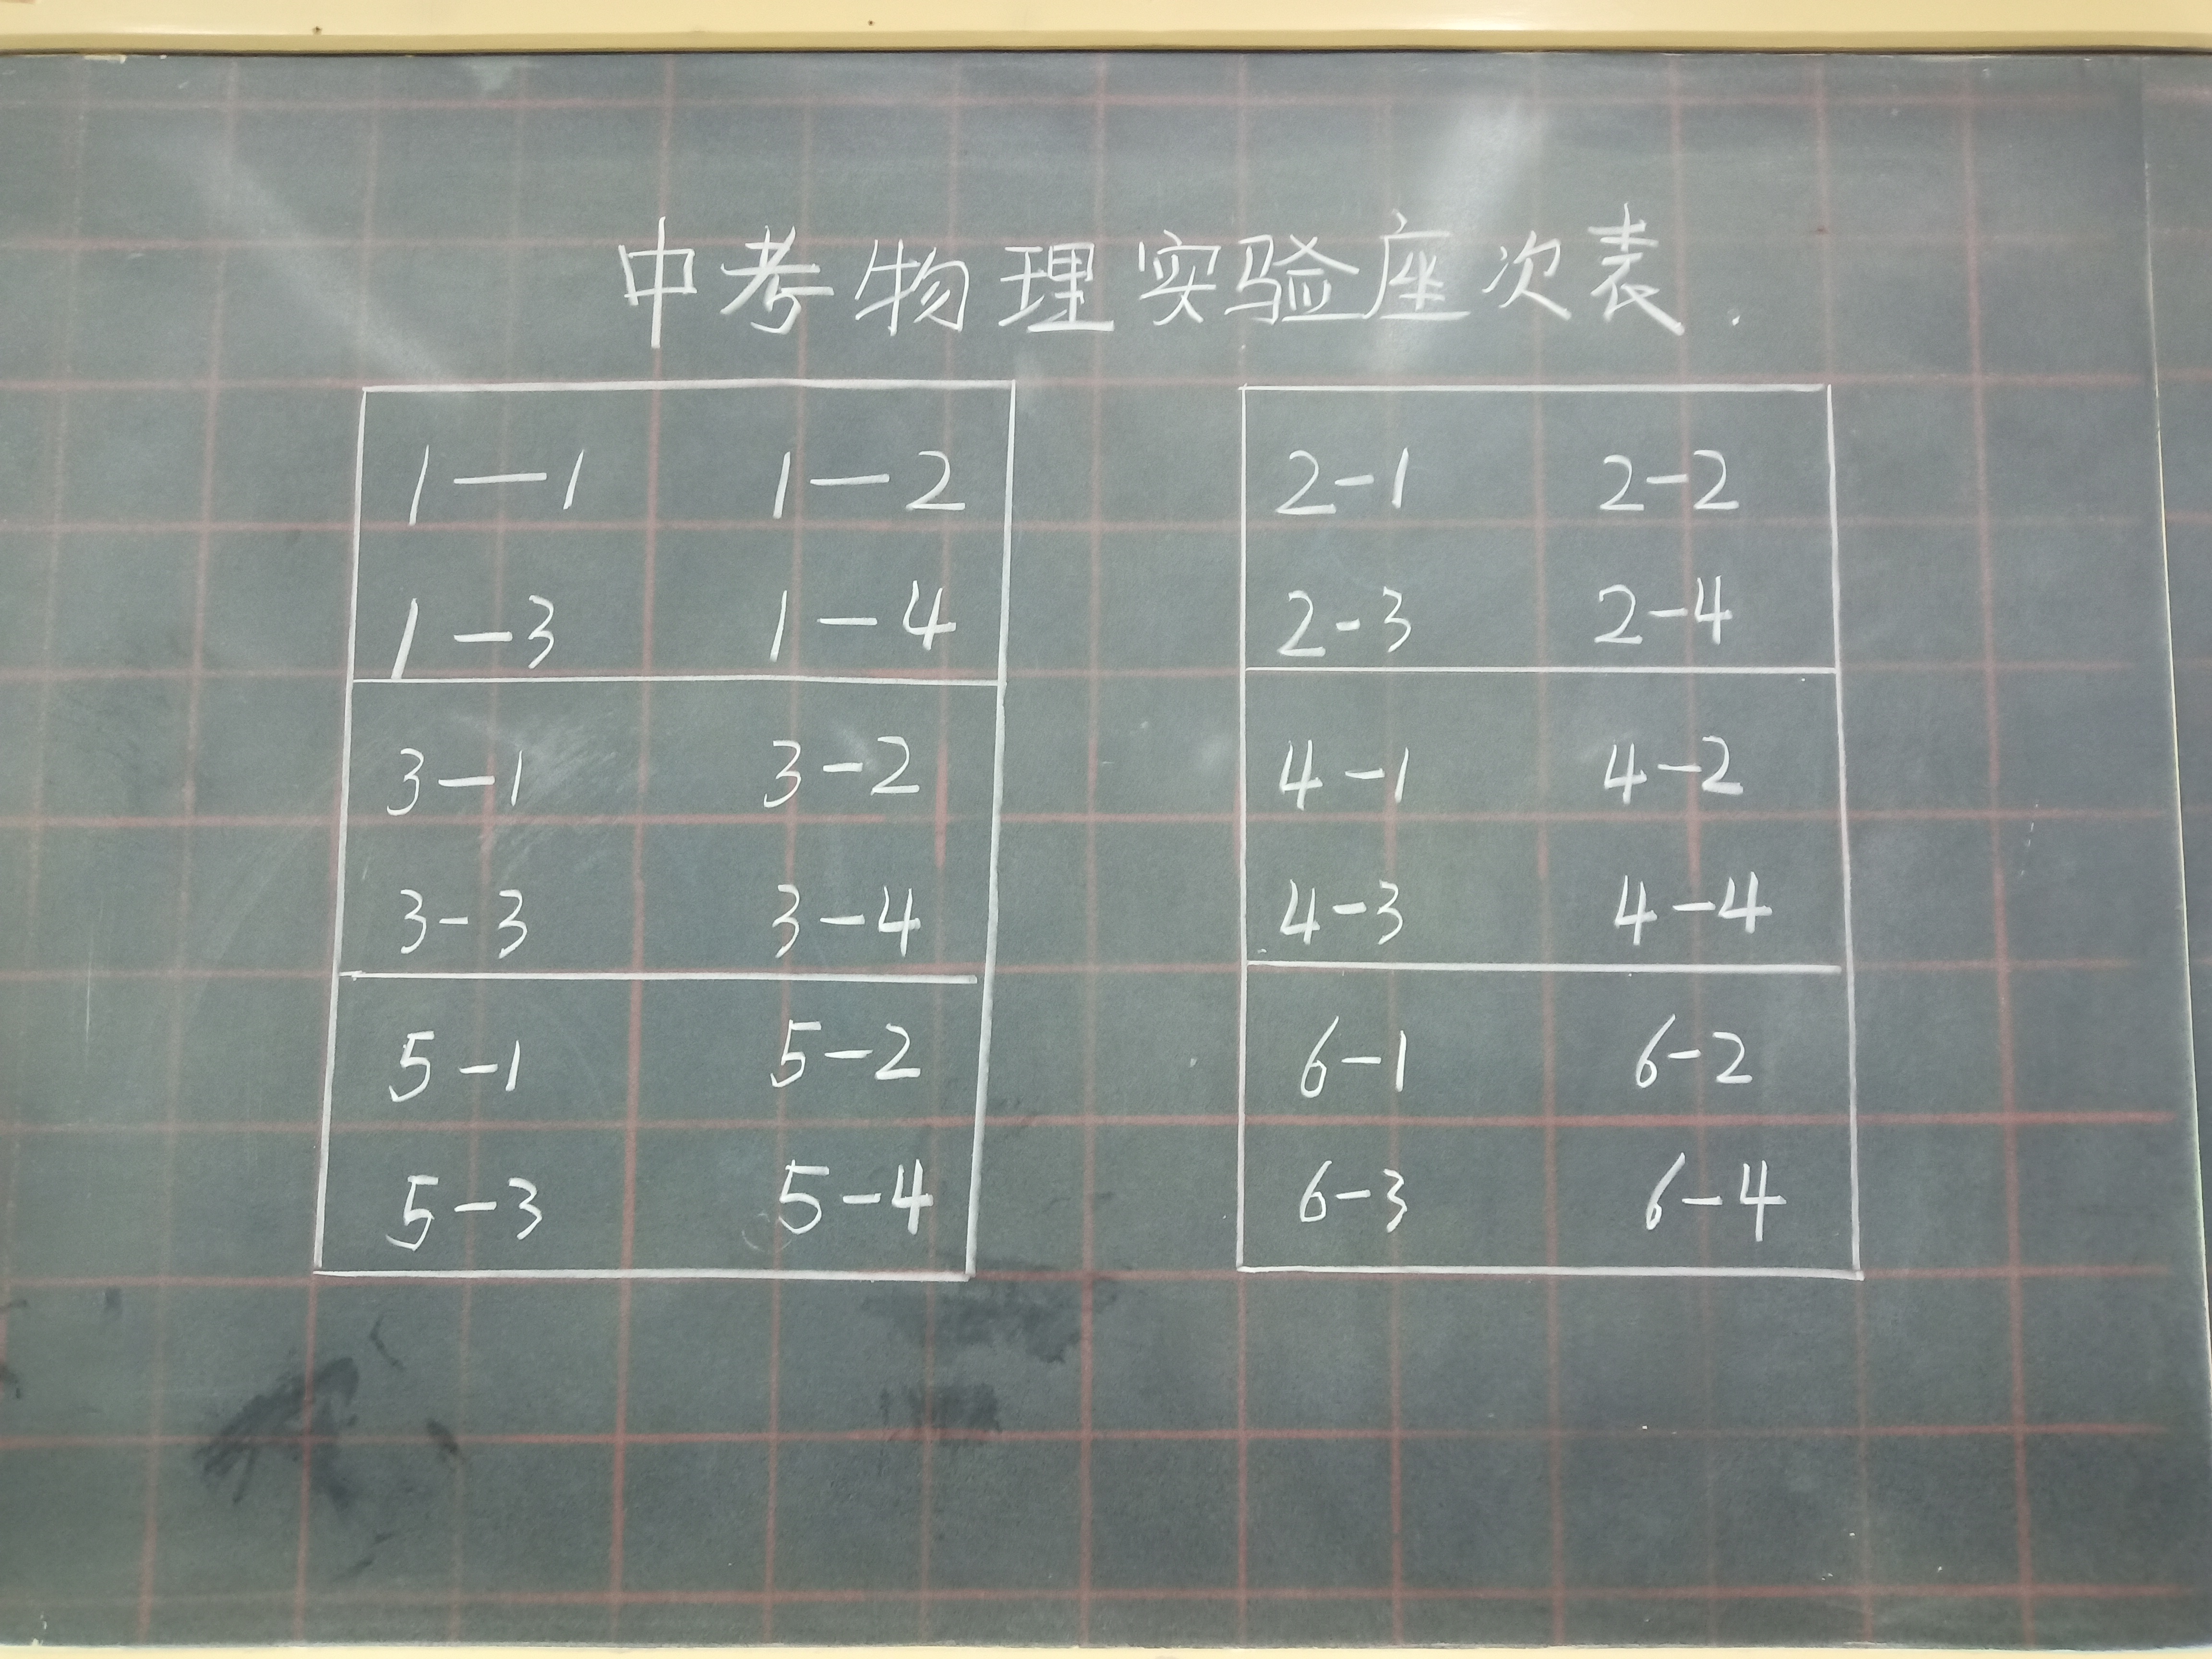 中考物理实验座次表.
1—1 1—2 2-1 2-2
1-3 1-4 2-3 2-4
3-1 3-2 4-1 4-2
3-3 3-4 4-3 4-4
5-1 5-2 6-1 6-2
5-3 5-4 6-3 6-4